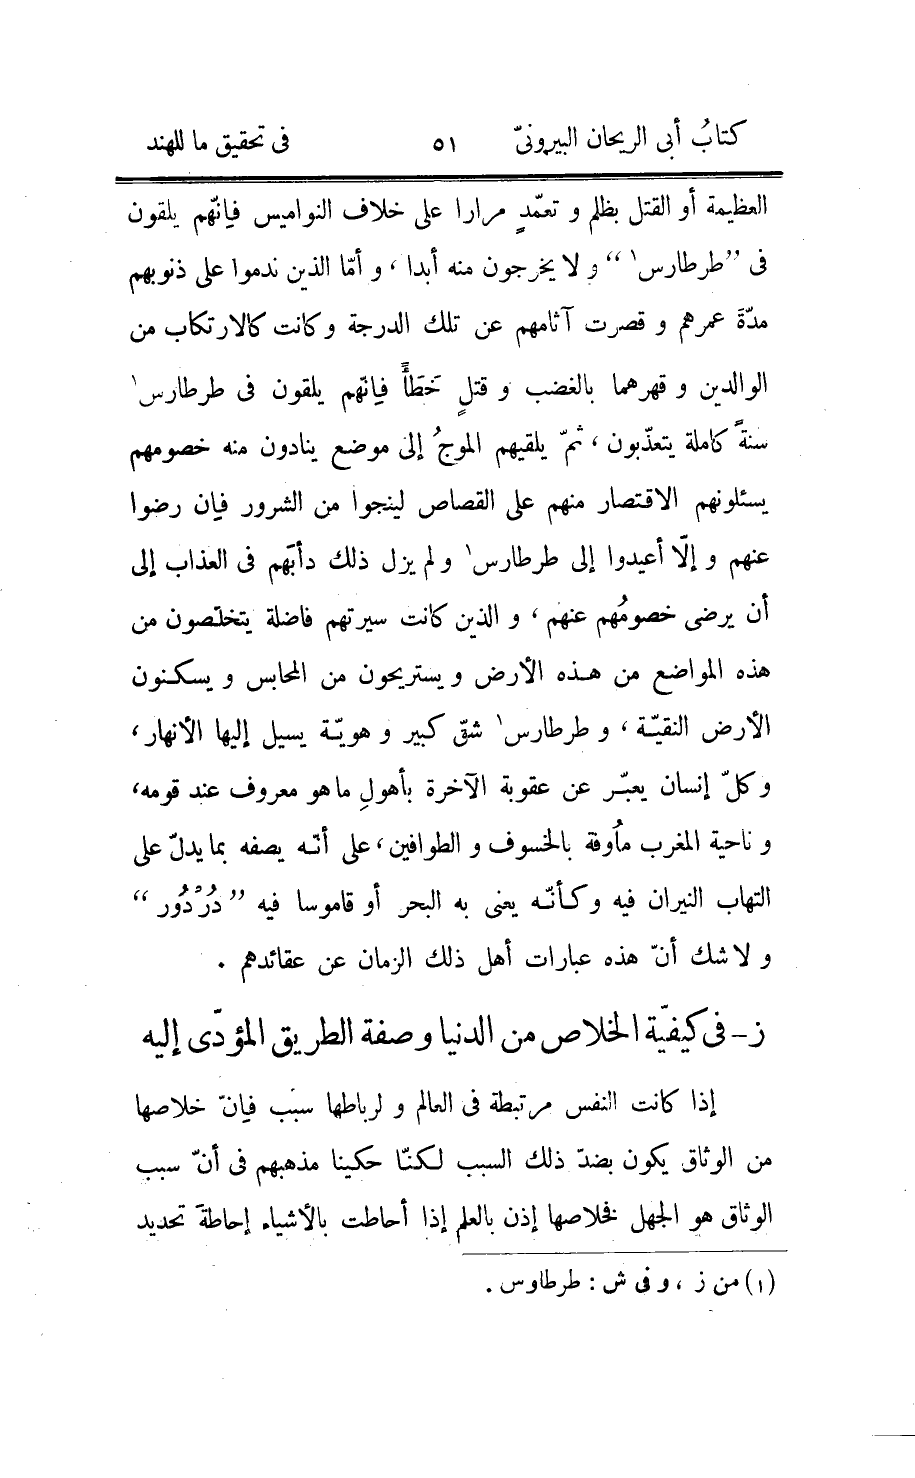 كتابُ أبى الريحان البيرونىّ ٥١ فى تحقيق ما للهند
العظيمة أو القتل بظلم و تعمّدٍ مرارا على خلاف النواميس فإنّهم يلقون
فى ”طرطارس١“ و لا يخرجون منه أبدا ، و أمّا الذين ندموا على ذنوبهم
مدّةَ عمرهم و قصرت آثامهم عن تلك الدرجة و كانت كالارتكاب من
الوالدين و قهرهما بالغضب و قتلٍ خَطَأً فإنّهم يلقون فى طرطارس١
سنةً كاملة يتعذّبون ، ثمّ يلقيهم الموجُ إلى موضع ينادون منه خصومهم
يسئلونهم الاقتصار منهم على القصاص لينجوا من الشرور فإن رضوا
عنهم و إلّا أعيدوا إلى طرطارس١ و لم يزل ذلك دأبَهم فى العذاب إلى
أن يرضى خصومُهم عنهم ، و الذين كانت سيرتهم فاضلة يتخلّصون من
هذه المواضع من هذه الأرض و يستريحون من المحابس و يسكنون
الأرض النقيّة ، و طرطارس١ شقّ كبير و هويّة يسيل إليها الأنهار ،
و كلّ إنسان يعبّر عن عقوبة الآخرة بأهولِ ما هو معروف عند قومه ،
و ناحية المغرب مأوفة بالخسوف و الطوافين ، على أنّه يصفه بما يدلّ على
التهاب النيران فيه و كأنّه يعنى به البحر أو قاموسا فيه ”دُرْدُور“
و لا شك أنّ هذه عبارات أهل ذلك الزمان عن عقائدهم .
ز – فى كيفيّة الخلاص من الدنيا و صفة الطريق المؤدّى إليه
إذا كانت النفس مرتبطة فى العالم و لرباطها سبب فإنّ خلاصها
من الوثاق يكون بضدّ ذلك السبب لكنّا حكينا مذهبهم فى أنّ سبب
الوثاق هو الجهل فخلاصها إذن بالعلم إذا أحاطت بالأشياء إحاطةَ تحديد
(١) من ز ، و فى ش : طرطاوس .